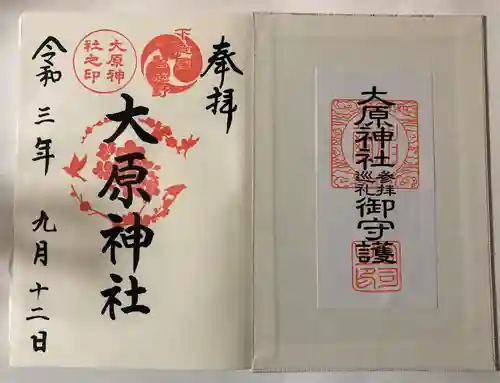 奉拝
下総国
大原神
社之印
大原神社
令和三年九月十二日
大原神社
参拝
巡礼
御守護